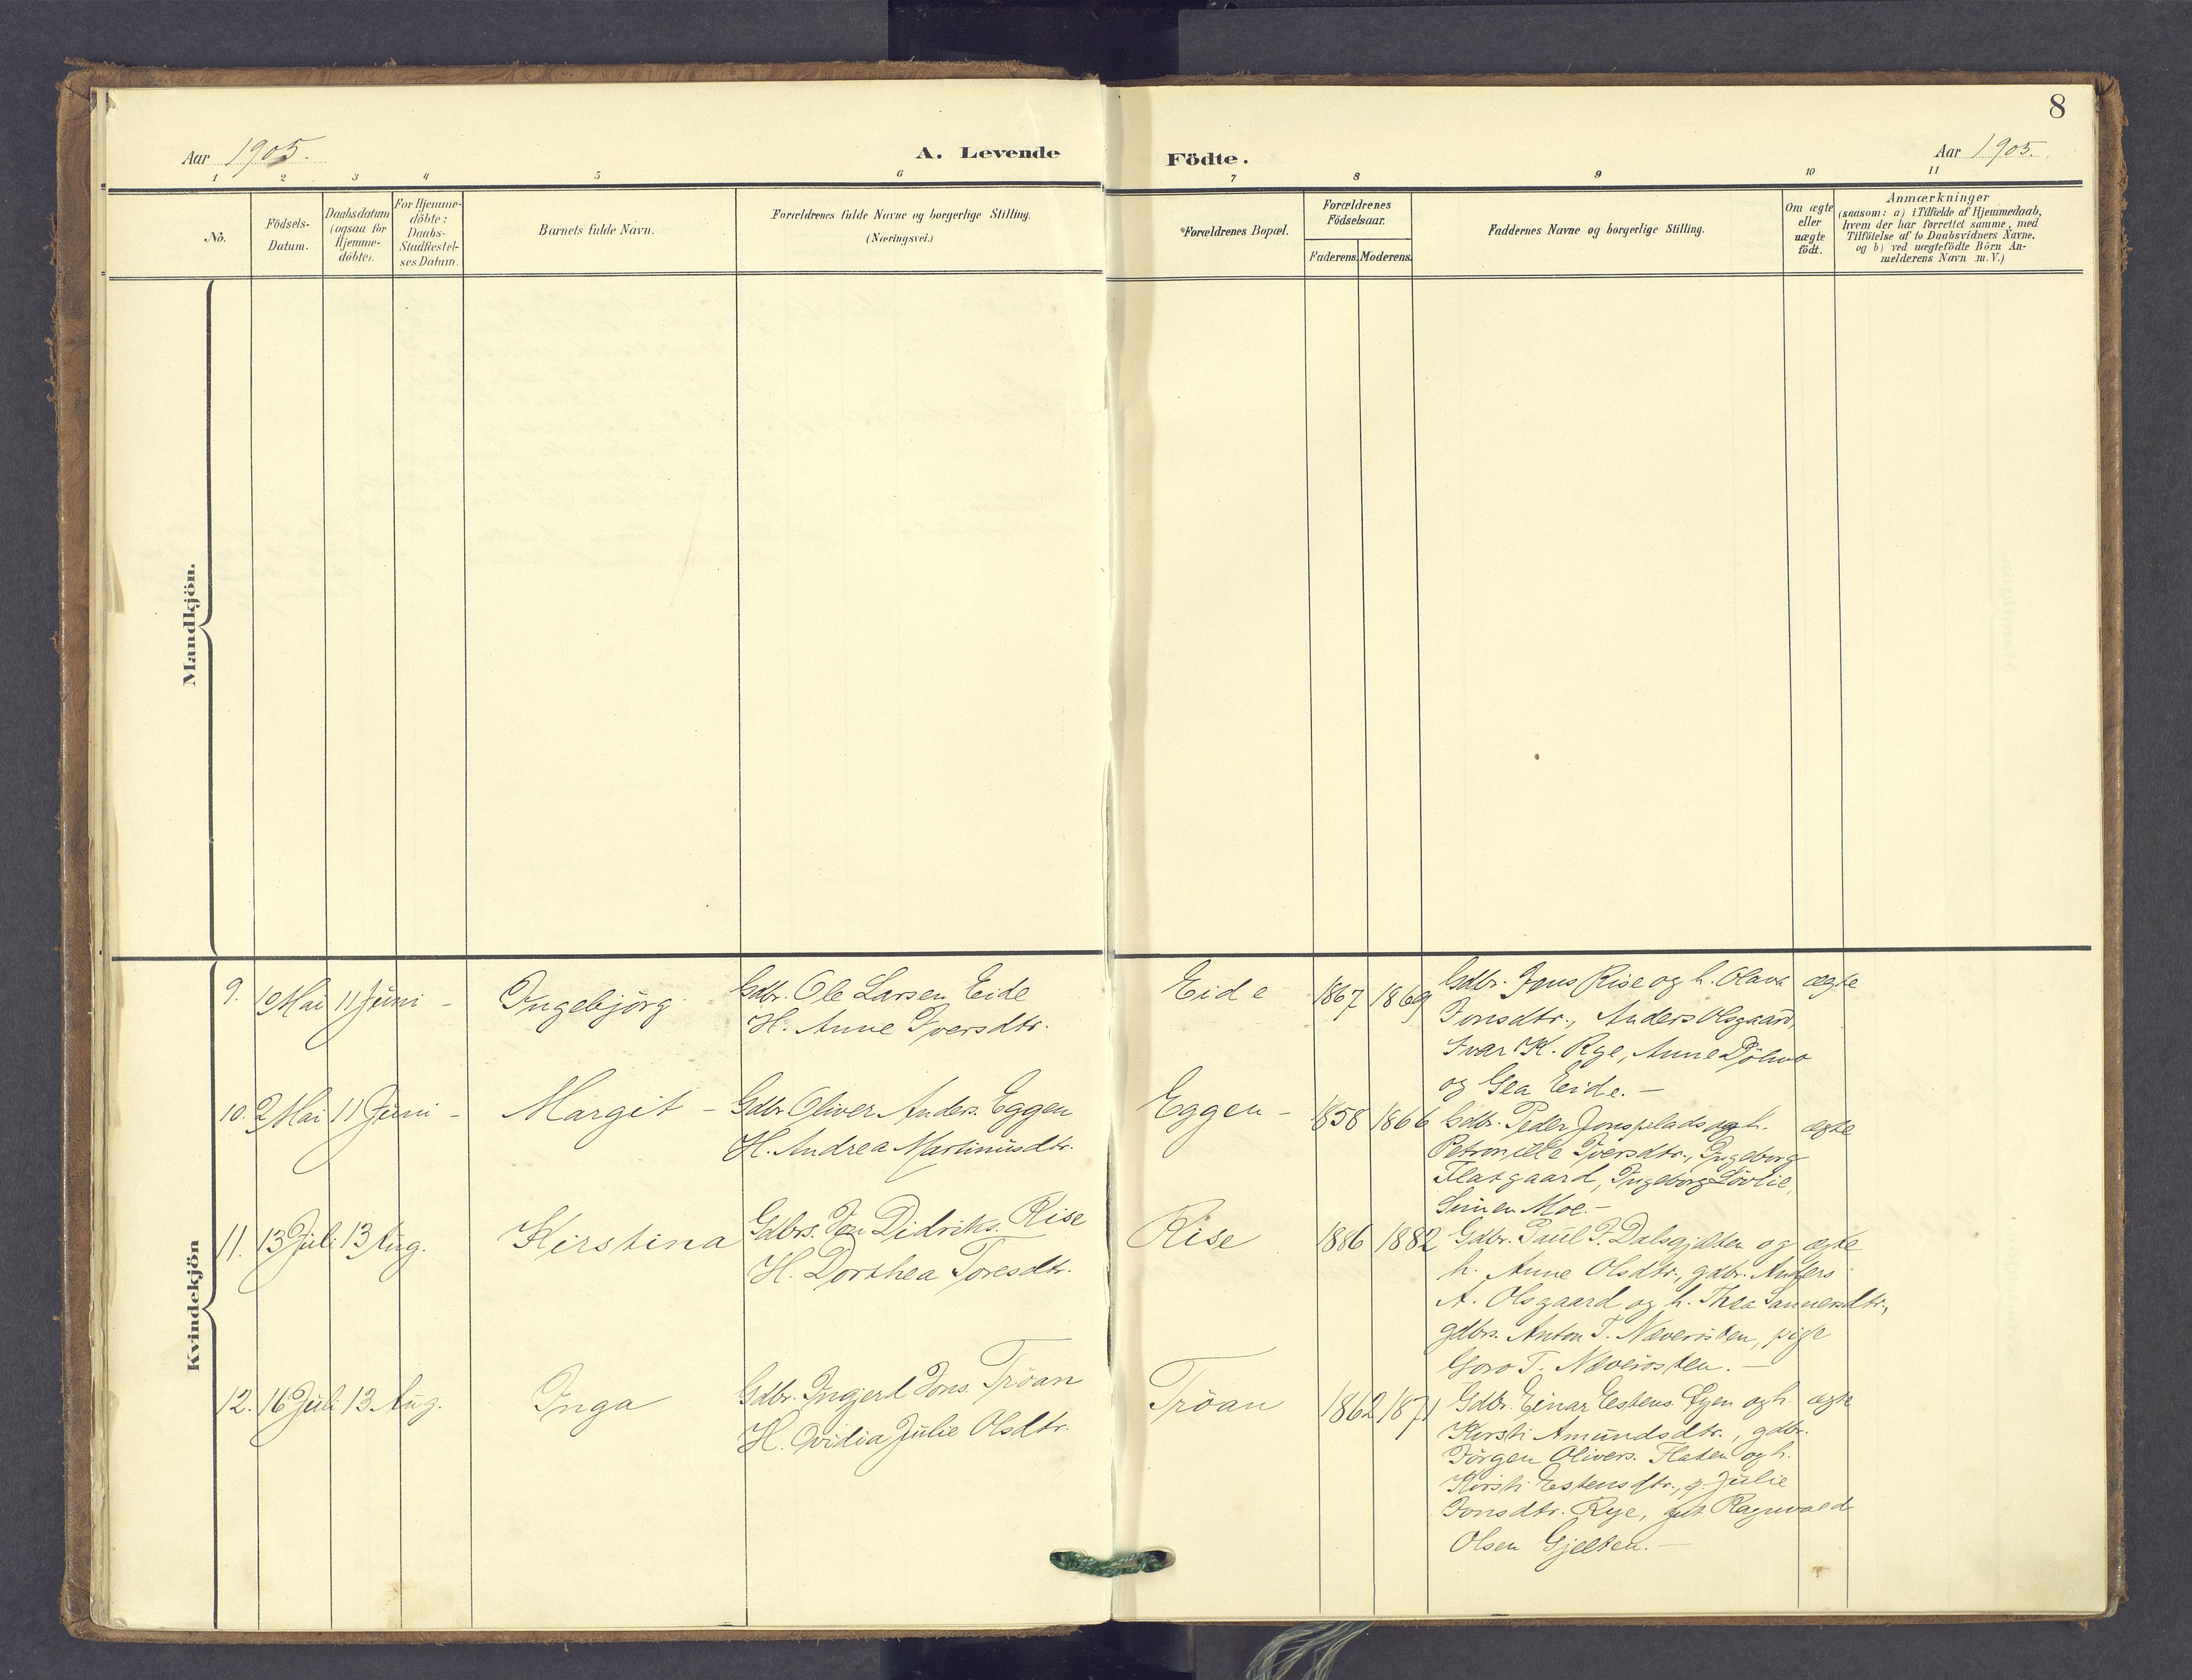 8
Aar 1905.
A. Levende Födte.
Aar 1905.
1 2 3 4 5 6 7 8 9 10 11
No.
Födsels-
Datum.
Daabsdatum
(ogsaa for
Hjemme-
döbte).
For Hjemme-
döbte:
Daabs-
Stadfæstel-
ses Datum.
Barnets fulde Navn.
Forældrenes fulde Navne og borgerlige Stilling.
(Næringsvei.)
Forældrenes Bopæl.
Forældrenes
Födselsaar.
Faderens. Moderens.
Faddernes Navne og borgerlige Stilling.
Om ægte
eller
uægte
födt.
Anmærkninger
(saasom: a) i Tilfælde af Hjemmedaab,
hvem der har forrettet samme, med
Tilföielse af to Daabsvidners Navne.
og b) ved uægtefödte Börn An-
melderens Navn m. V.)
Mandkjön.
Kvindekjön
9. 10 Mai 11 Juni - Ingebjörg.
Gdbr. Ole Larsen Eide
H. Anne Iversdtr.
Eide 1867 1869
Gdbr. Jens Rise og h. Olava
Jonsdtr., Anders Olsgaard,
Ivar K. Rye, Anne
og Gea Eide. -
ægte
10. 2 Mai 11 Juni - Margit -
Gdbr. Oliver Anders. Eggen
H. Andrea Martinusdtr.
Eggen - 1858 1866
Gdbr. Peder Jonsplads og h.
Petronille Iversdtr., Ingeborg
Flatgaard, Ingeborg Lövlie,
Simen Moe. -
ægte
11. 13 Juli 13 Aug. Kirstina
Gdbrs. Jon Didriks. Rise
H. Dorthea Toresdtr.
Rise 1886 1882
Gdbr. Paul P. Dalsgjelten og
h. Anne Olsdtr., gdbr. Anders
A. Olsgaard og h. Thea
gdbrs. Anton T. Næverösten, pige
Goro T. Næverösten. -
ægte
12. 16 Juli 13 Aug. Inga
Gdbr. Ingjerd Jons. Tröan
H. Ovidia Julie Olsdtr.
Tröan 1862 1871
Gdbr. Einar Estens. Öyen og h.
Kirsti Amundsdtr., gdbr.
Jörgen Olivers. Flaten og h.
Kirsti Estensdtr., p. Julie
Jonsdtr. Rye, gut Ragnvald
Olsen Gjelten. -
ægte